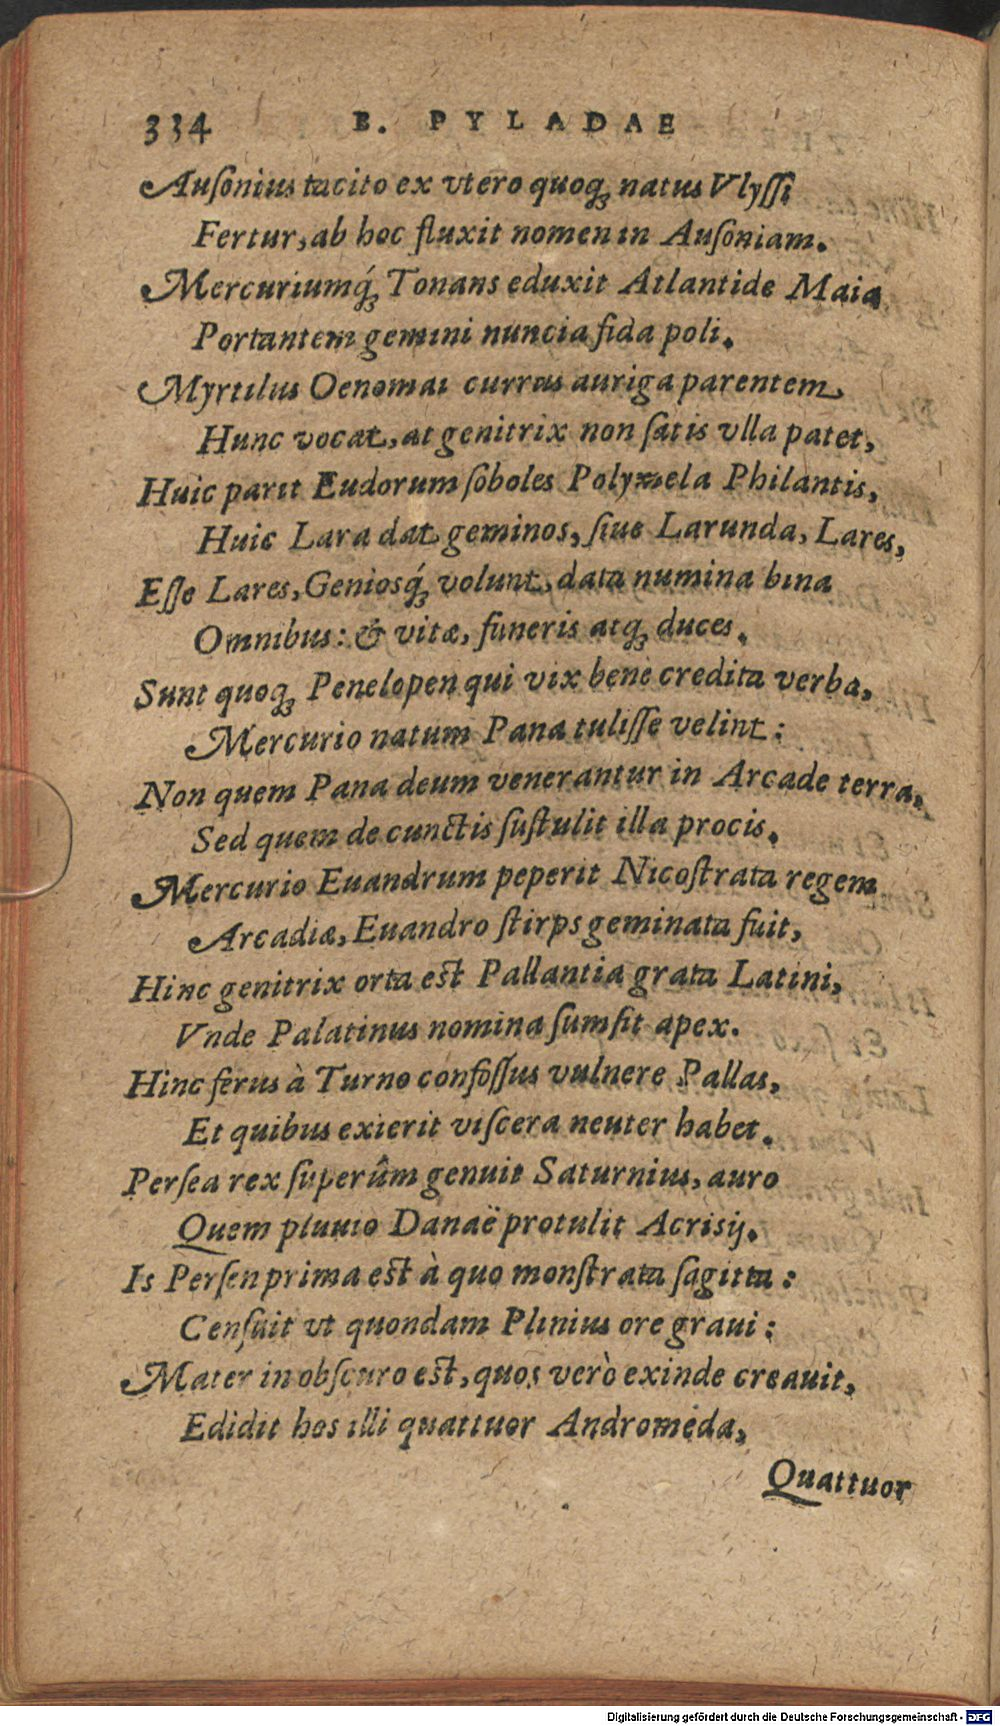 334 B. PYLADAE
Auſonius tacito ex vtero quoq; natus Vlyſſi
Fertur, ab hoc fluxit nomen in Auſoniam.
Mercuriumq́; Tonans eduxit Atlantide Maia
Portantem gemini nuncia fida poli.
Myrtilus Oenomai currus auriga parentem
Hunc vocat, at genitrix non ſatis vlla patet,
Huic parit Eudorum ſoboles Polymela Philantis,
Huic Lara dat geminos, ſiue Larunda, Lares,
Eſſe Lares, Geniosq́; volunt, data numina bina
Omnibus: & vitæ, funeris atq; duces.
Sunt quoq; Penelopen qui vix bene credita verba,
Mercurio natum Pana tuliſſe velint:
Non quem Pana deum venerantur in Arcade terra,
Sed quem de cunctis ſuſtulit illa procis.
Mercurio Euandrum peperit Nicoſtrata regem
Arcadiæ, Euandro ſtirps geminata fuit,
Hinc genitrix orta est Pallantia grata Latini,
Vnde Palatinus nomina ſumſit apex.
Hinc ferus à Turno confoſſus vulnere Pallas,
Et quibus exierit viſcera neuter habet.
Perſea rex ſuperûm genuit Saturnius, auro
Quem pluuio Danaë protulit Acrisij.
Is Perſen prima est à quo monſtrata ſagitta:
Cenſuit vt quondam Plinius ore graui:
Mater in obſcuro est, quos verò exinde creauit,
Edidit hos illi quattuor Andromeda,
Quattuor
Digitalisierung gefördert durch die Deutsche Forschungsgemeinschaft - DFG